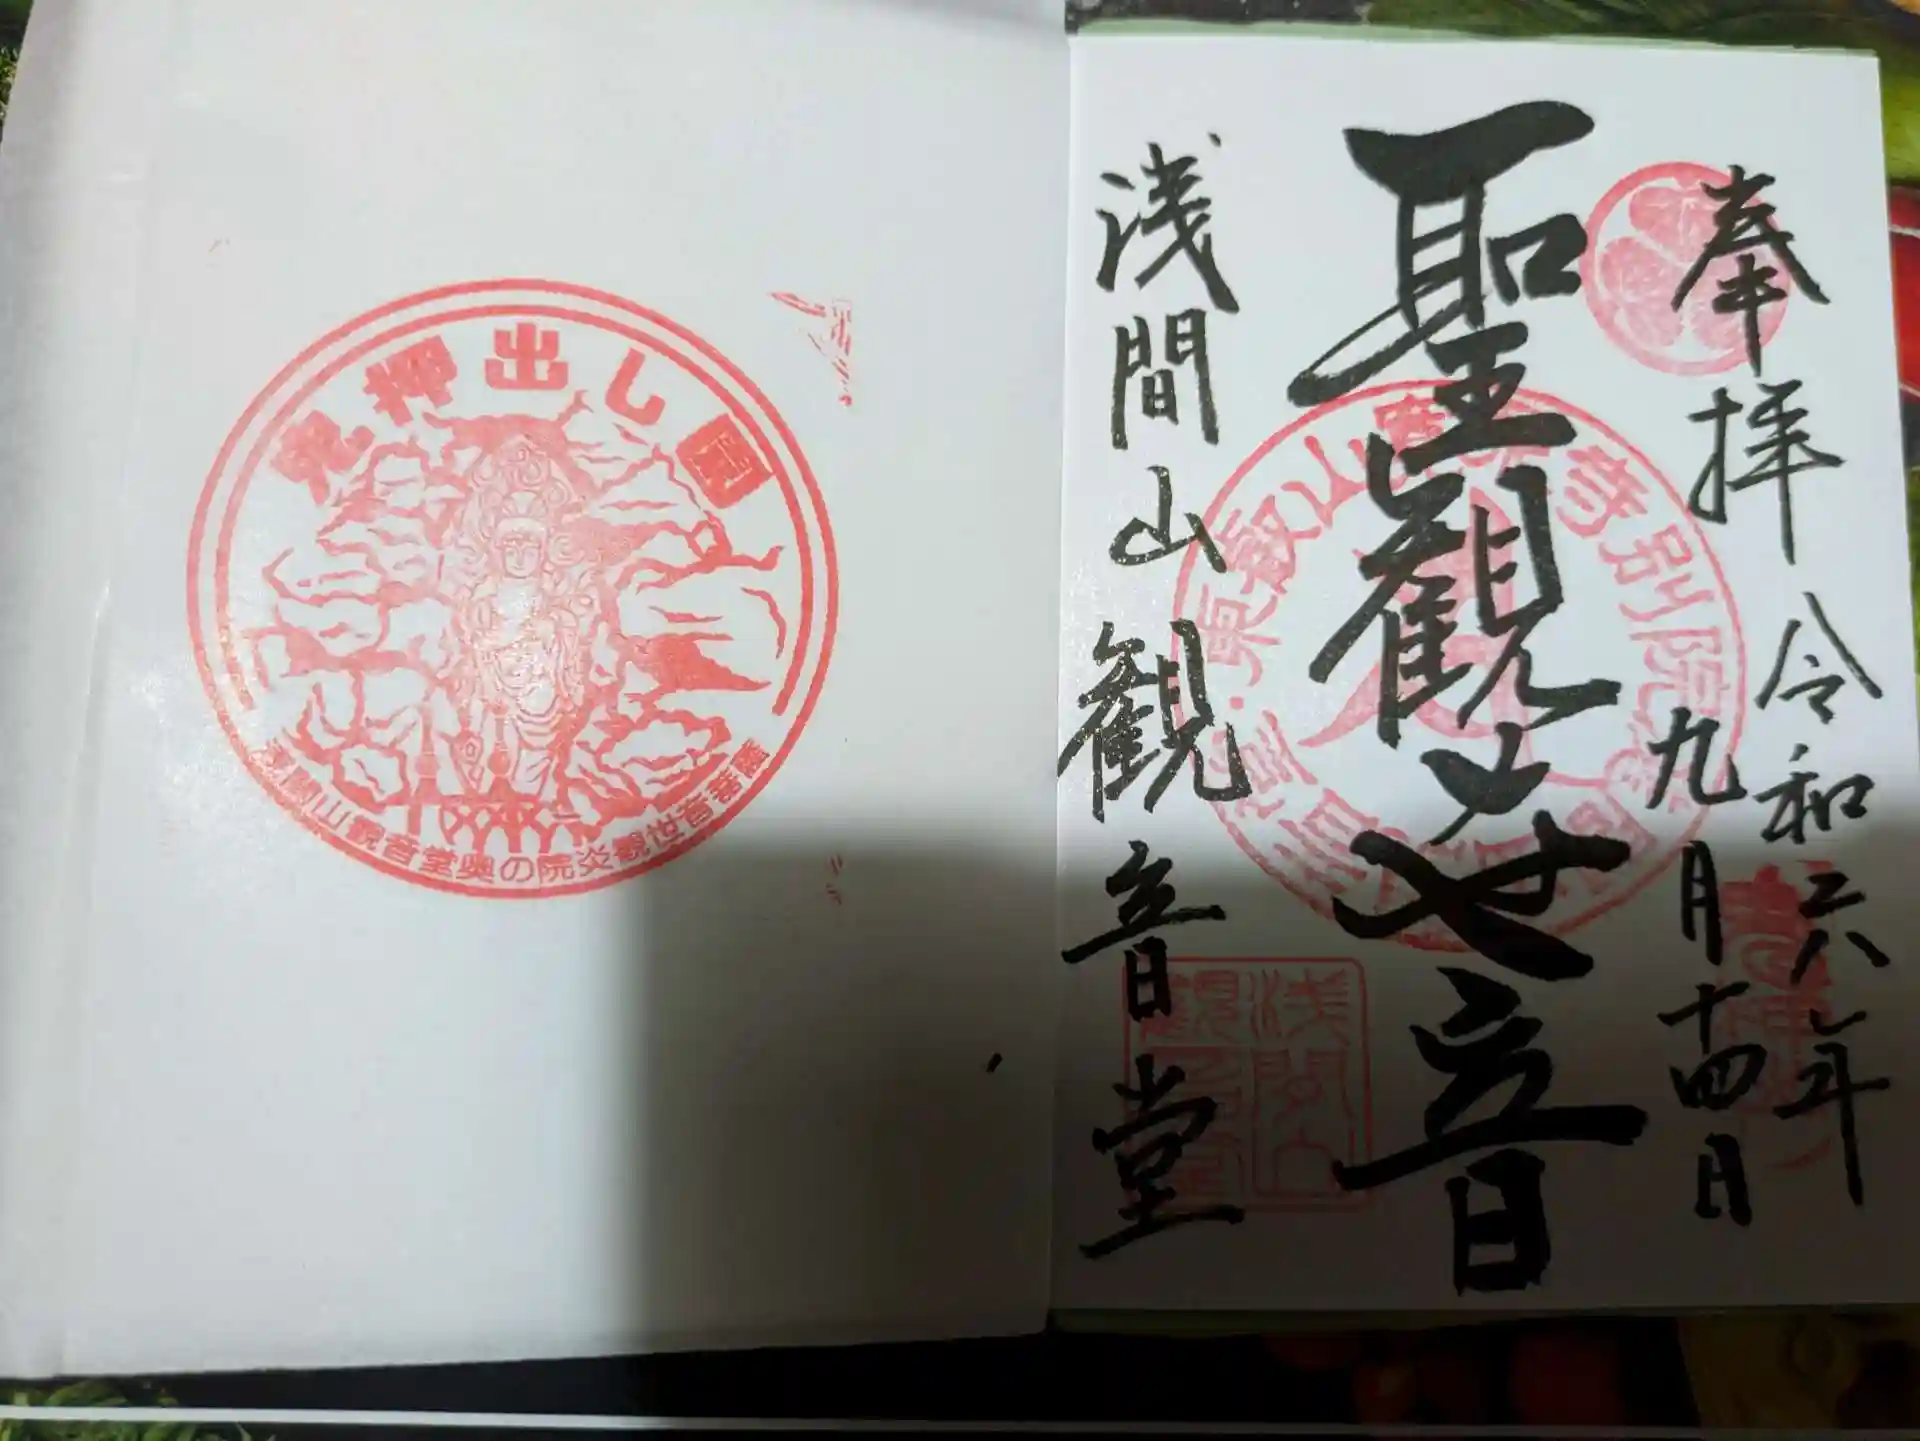 鬼押出し園
浅間山観音堂奥の院炎観世音菩薩
奉拝
令和六年
九月十四日
聖観世音
浅間山観音堂
浅間山
観音堂